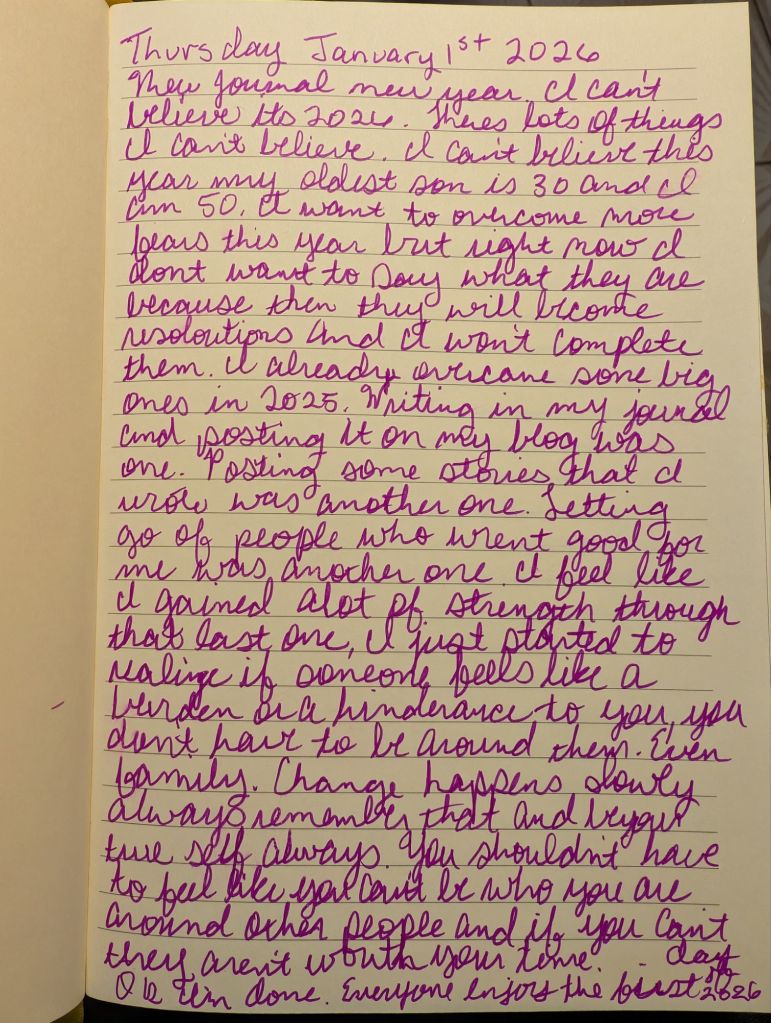 Thursday January 1st 2026
New journal new year. I can't
believe its 2026. Theres lots of things
I can't believe. I can't believe this
year my oldest son is 30 and I
am 50. I want to overcome more
fears this year but right now I
dont want to say what they are
because then they will become
resoloutions and I won't complete
them. I already overcame some big
ones in 2025. Writing in my journal
and posting it on my blog was
one. Posting some stories that I
wrote was another one. Letting
go of people who wrent good for
me was another one. I feel like
I gained alot of strength through
that last one, I just started to
realize if someone feels like a
burden or a hinderance to you, you
don't have to be around them. Even
family. Change happens slowly
always remember that and be your
true self always. You shouldn't have
to feel like you can't be who you are
around other people and if you can't
they aren't worth your time.
Ok I'm done. Everyone enjoys the first day of 2026